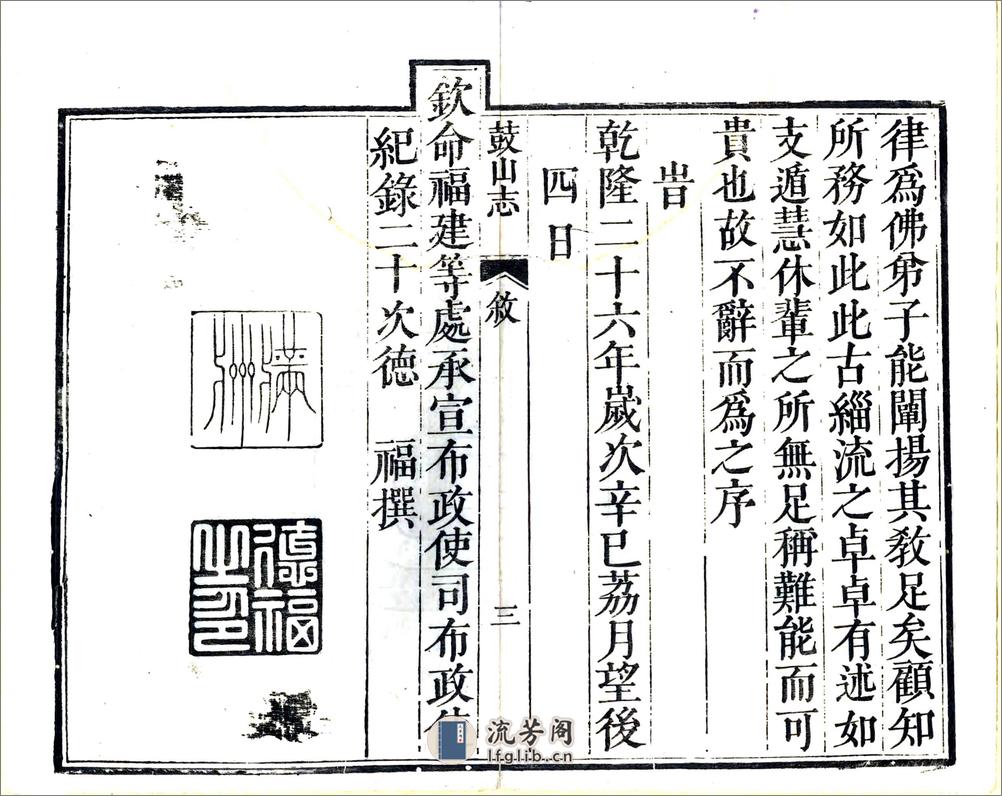 律爲佛弟子能闡揚其敎足矣顧知
所務如此此古緇流之卓卓有述如
支遁慧休輩之所無足稱難能而可
貴也故不辭而爲之序
旹
乾隆二十六年歲次辛巳荔月望後
四日
鼓山志 敘 三
欽命福建等處承宣布政使司布政使
紀錄二十次德 福撰
滿洲
德福之印
流芳阁
lfglib.cn